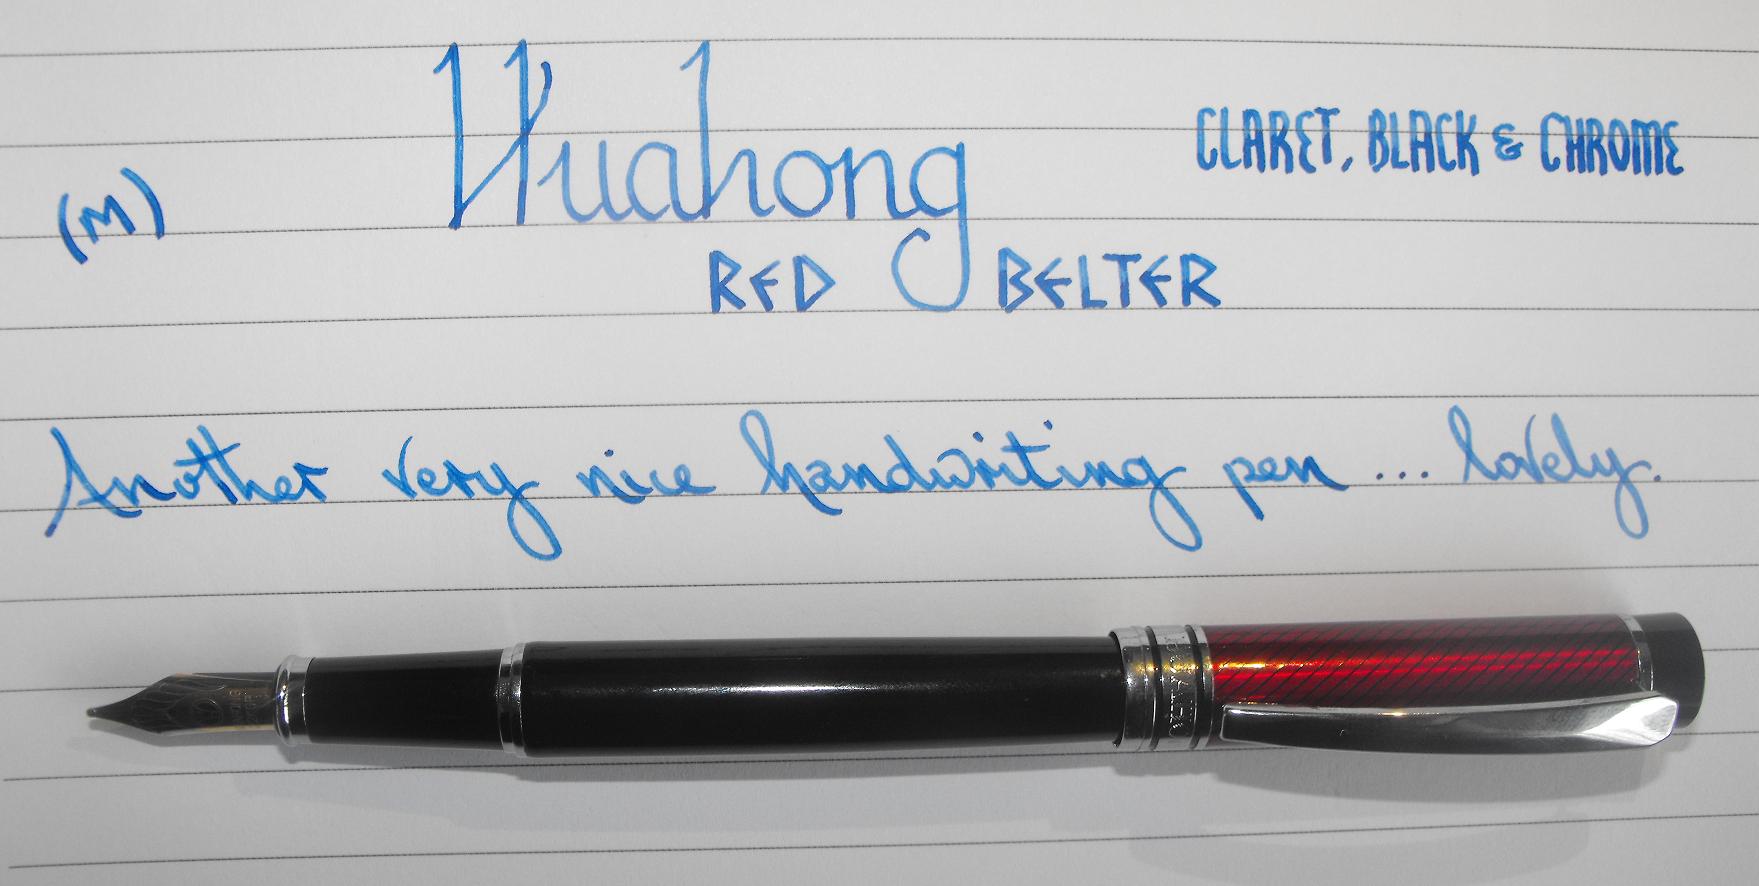 Huahong
CLARET, BLACK & CHROME
(M)
RED BELTER
Another very nice handwriting pen ... lovely.